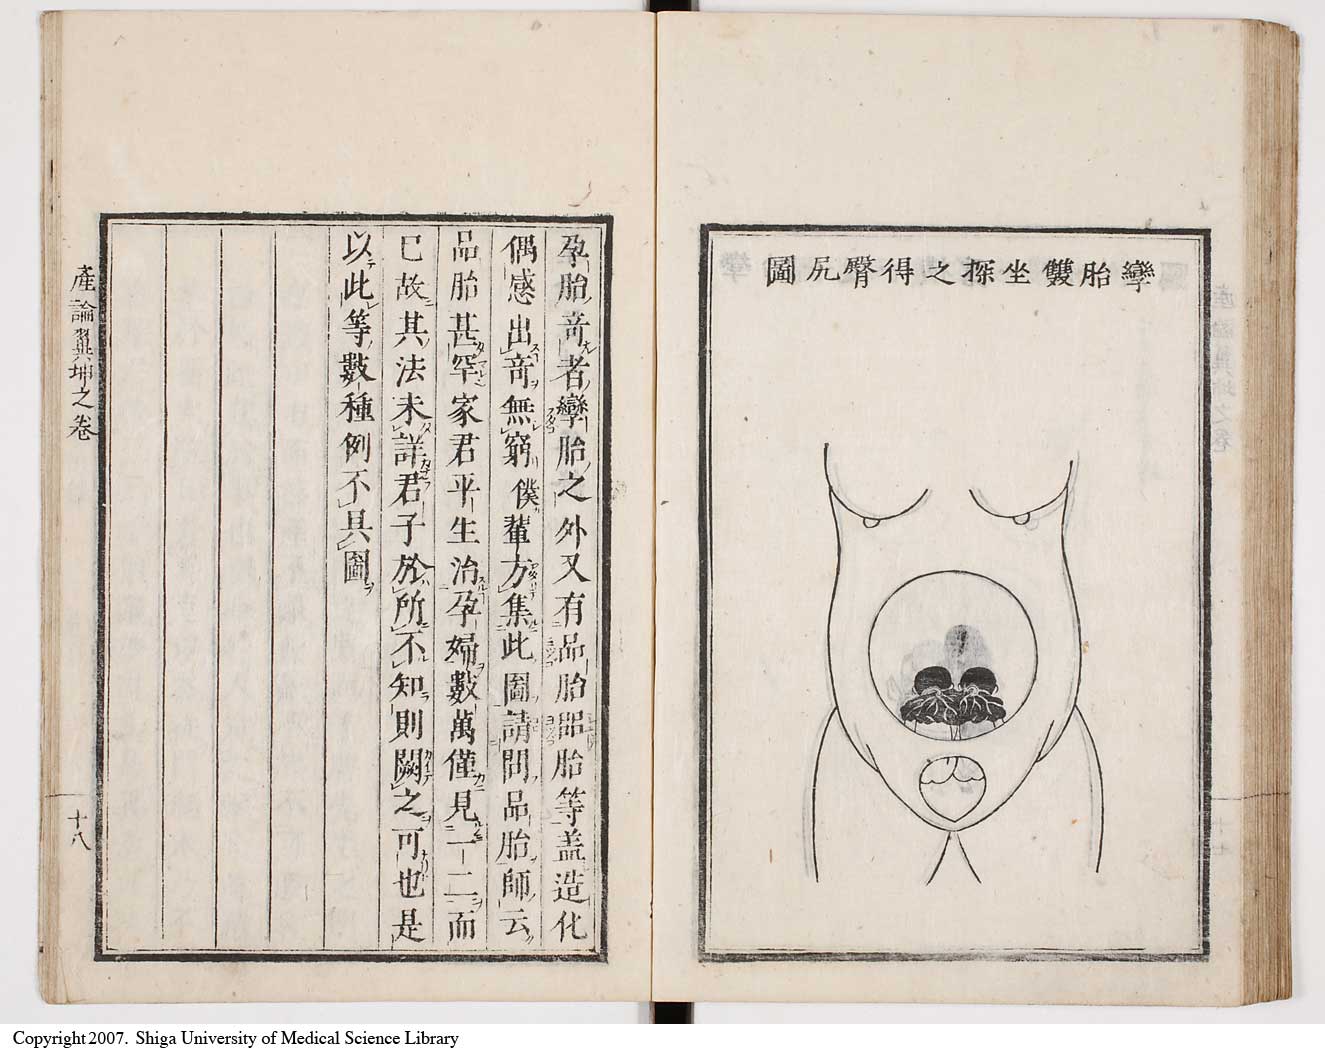 孿胎雙坐探之得臀尻圖
孕胎竒者孿胎之外又有品胎㗊胎等盖造化
偶感出竒無窮僕輩方集此圖請問品胎師云
品胎甚罕家君平生治孕婦數萬僅見一二而
已故其法未詳君子於所不知則闕之可也是
以此等數種例不具圖
產論翼坤之卷
十八
Copyright 2007. Shiga University of Medical Science Library